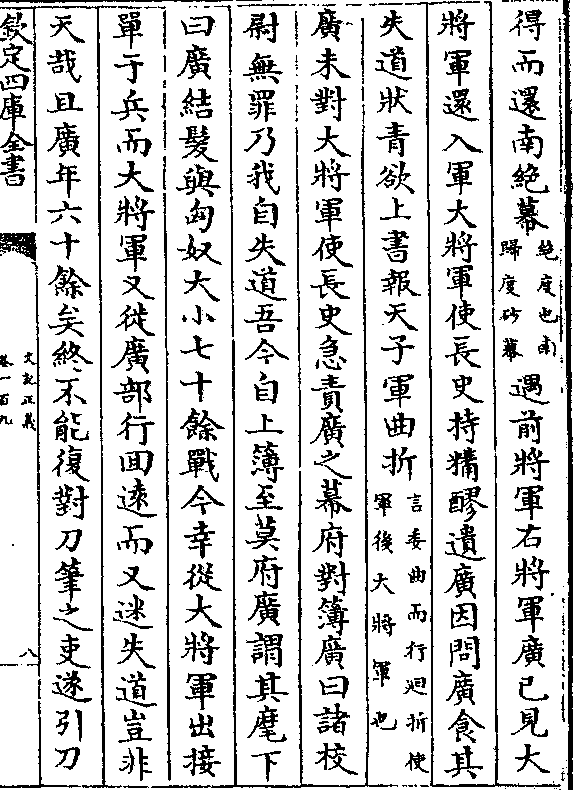 得而還南絶幕絶度也南歸度砂幕遇前將軍右將軍廣已見大
將軍還入軍大將軍使長史持糒醪遺廣因問廣食其
失道狀青欲上書報天子軍曲折言委曲而行廻折使軍後大將軍也
廣未對大將軍使長史急責廣之幕府對簿廣曰諸校
尉無罪乃我自失道吾今自上簿至莫府廣謂其麾下
曰廣結髮與匈奴大小七十餘戰今幸從大將軍出接
單于兵而大將軍又徙廣部行囬遠而又迷失道豈非
天哉且廣年六十餘矣終不能復對刀筆之吏遂引刀
欽定四庫全書
史記正義
卷一百九
八